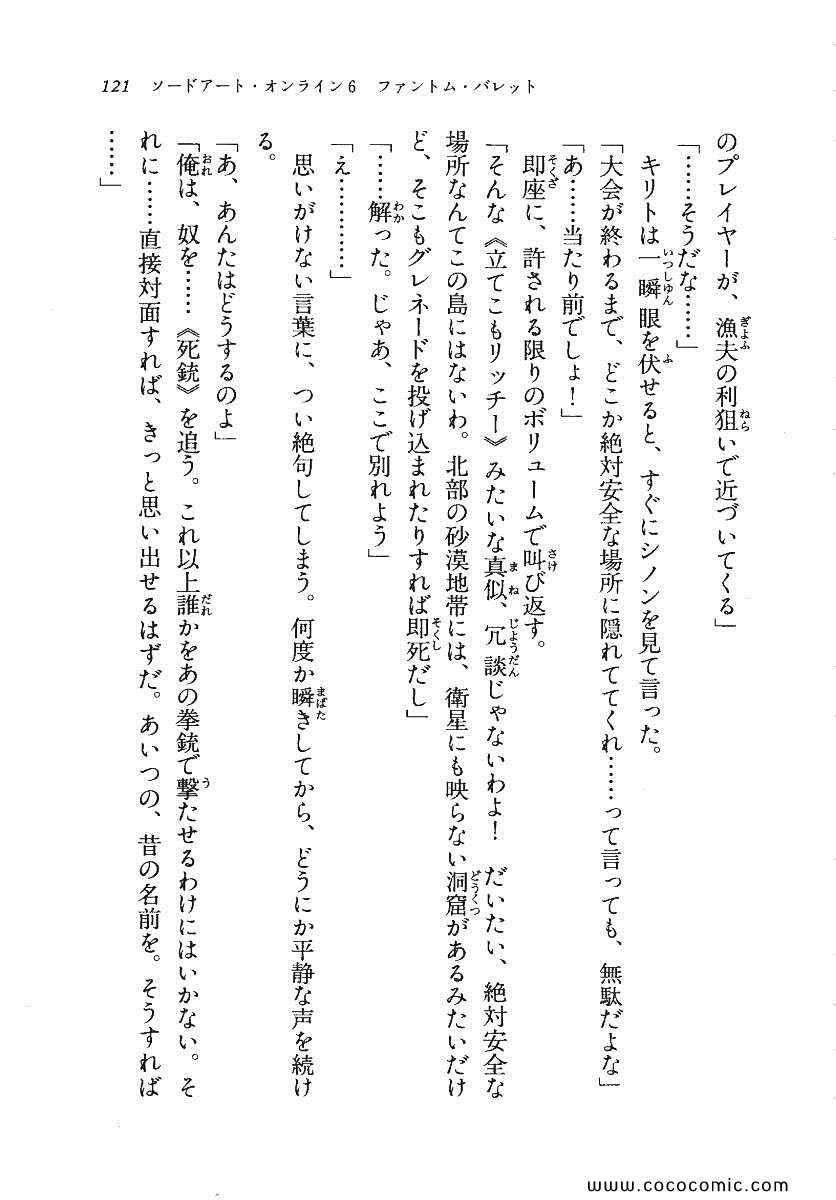 121　ソードアート・オンライン6　ファントム・バレット
のプレイヤーが、漁夫の利狙いで近づいてくる」
「……そうだな……」
　キリトは一瞬眼を伏せると、すぐにシノンを見て言った。
「大会が終わるまで、どこか絶対安全な場所に隠れててくれ……って言っても、無駄だよな」
「あ……当たり前でしょ！」
　即座に、許される限りのボリュームで叫び返す。
「そんな《立てこもりリッチー》みたいな真似、冗談じゃないわよ！　だいたい、絶対安全な
場所なんてこの島にはないわ。北部の砂漠地帯には、衛星にも映らない洞窟があるみたいだけ
ど、そこもグレネードを投げ込まれたりすれば即死だし」
「……解った。じゃあ、ここで別れよう」
「え…………」
　思いがけない言葉に、つい絶句してしまう。何度か瞬きしてから、どうにか平静な声を続け
る。
「あ、あんたはどうするのよ」
「俺は、奴を……《死銃》を追う。これ以上誰かをあの拳銃で撃たせるわけにはいかない。そ
れに……直接対面すれば、きっと思い出せるはずだ。あいつの、昔の名前を。そうすれば
……」
www.cococomic.com